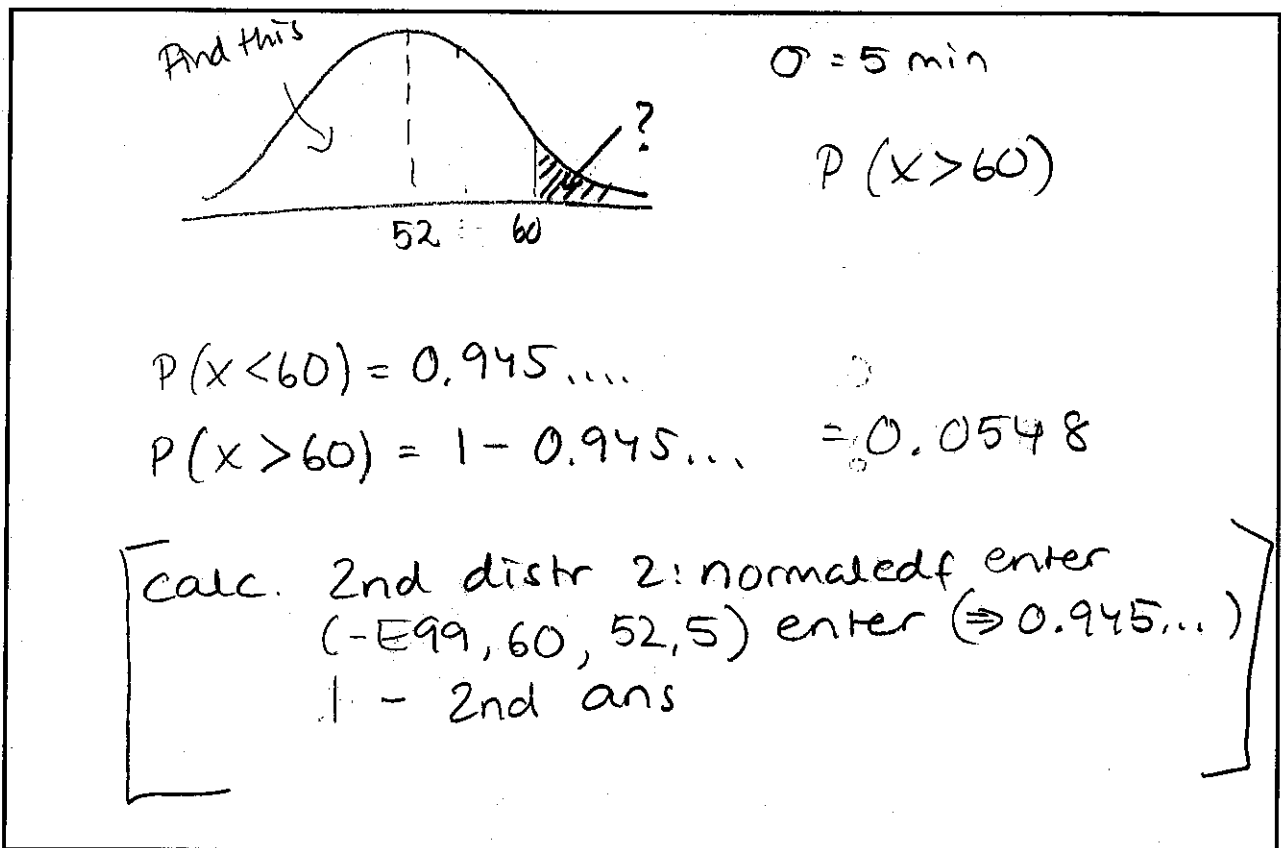 Find this
σ = 5 min
?
P(x>60)
52 60
P(x<60) = 0.945....
P(x>60) = 1 - 0.945... = 0.0548
calc. 2nd distr 2: normalcdf enter
(-E99, 60, 52, 5) enter (⇒ 0.945...)
1 - 2nd ans